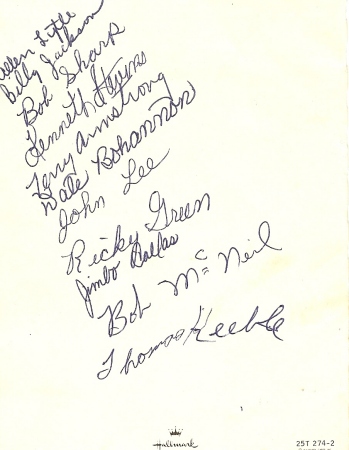 Helen Little
Billy Jackson
Bob Sharp
Kenneth Stevens
Terry Armstrong
Dale Bohannon
John Lee
Ricky Green
Jimbo Dallas
Bob McNeil
Thomas Keeble
Hallmark
25T 274-2